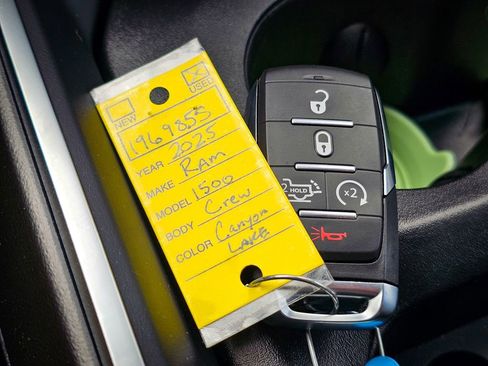 NEW USED
1969855
YEAR 2025
MAKE RAM
MODEL 1500
BODY Crew
COLOR Canyon
LAKE
2 HOLD
x2